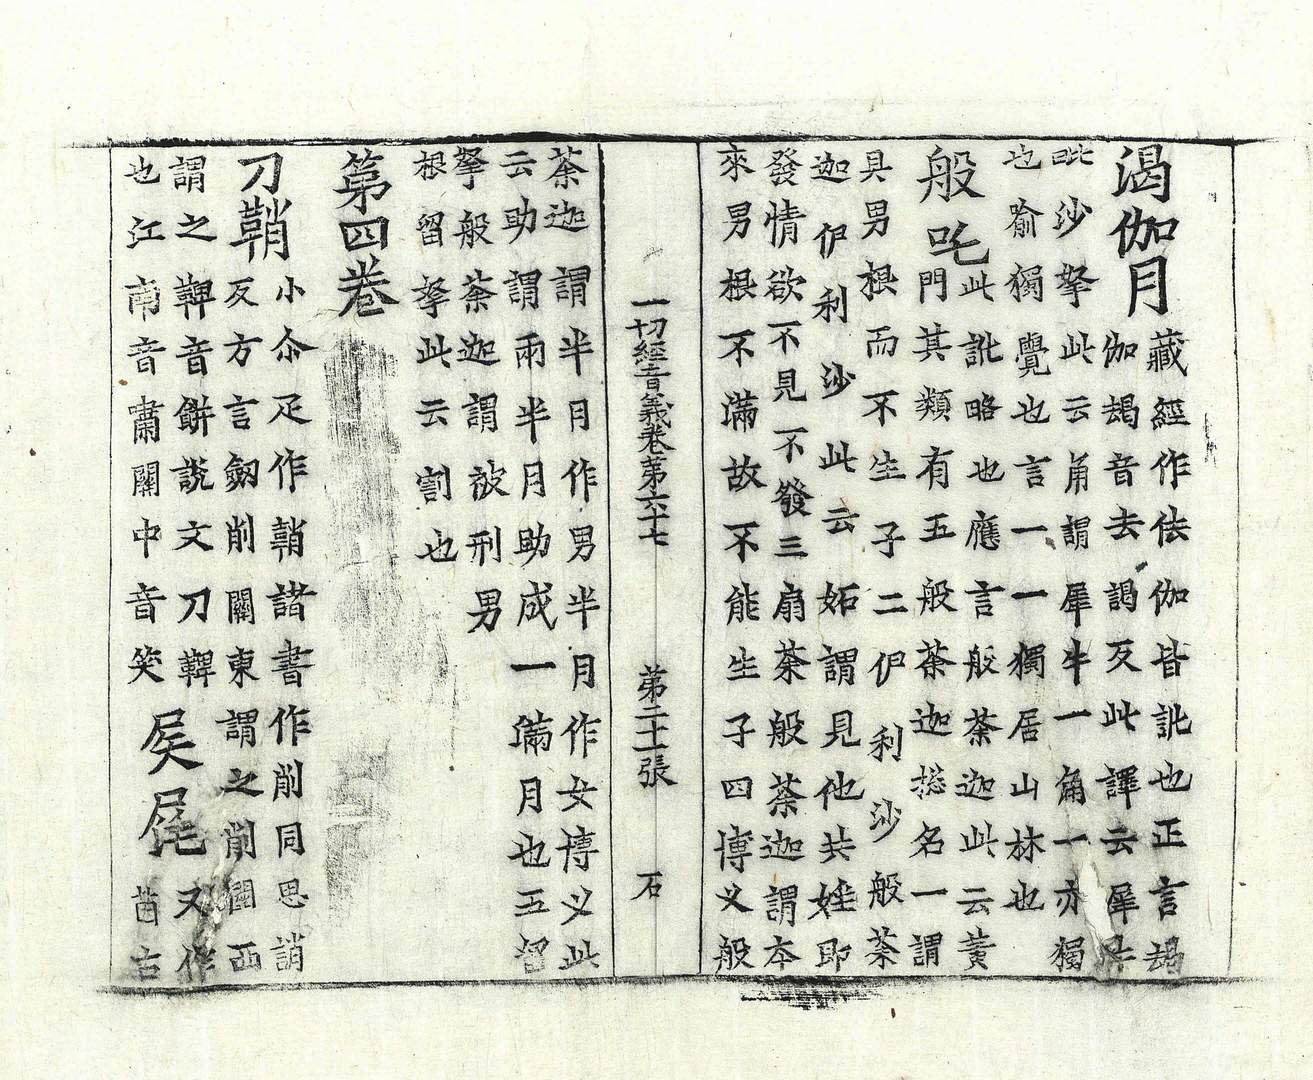 渴伽月
藏經作佉伽皆訛也正言朅
伽朅音去謁反此譯云犀牛
毗沙拏此云角謂犀牛一角一亦獨
也喻獨覺也言一一獨居山林也
般吒
此訛略也應言般荼迦此云黃
門其類有五般荼迦揔名一謂
具男根而不生子二伊利沙般荼
迦伊利沙此云妬謂見他共婬即
發情欲不見不發三扇荼般荼迦謂本
來男根不滿故不能生子四博义般
一切經音義卷第六十七 第二十一張 石
荼迦謂半月作男半月作女博义此
云助謂兩半月助成一滿月也五留
拏般荼迦謂被刑男
根留拏此云割也
第四卷
刀鞘
小尒疋作鞘諸書作削同思誚
反方言劒削關東謂之削關西
謂之鞞音餅說文刀鞞
也江南音嘯關中音笑
尾
又作
古